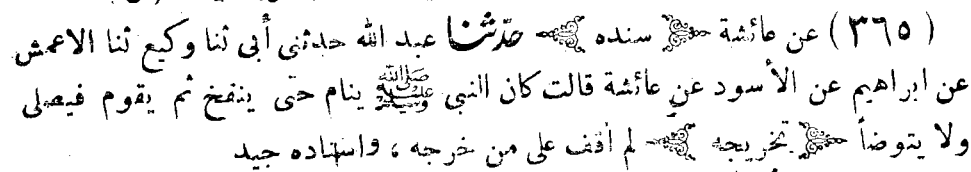 (٣٦٥) عن عائشة سنده حدّثنا عبد الله حدثنى أبى ثنا وكيع ثنا الاعمش
عن ابراهيم عن الأسود عن عائشة قالت كان النبى ﷺ ينام حتى ينفخ ثم يقوم فيصلى
ولا يتوضأ تخريجه لم أقف على من خرجه ، واسناده جيد